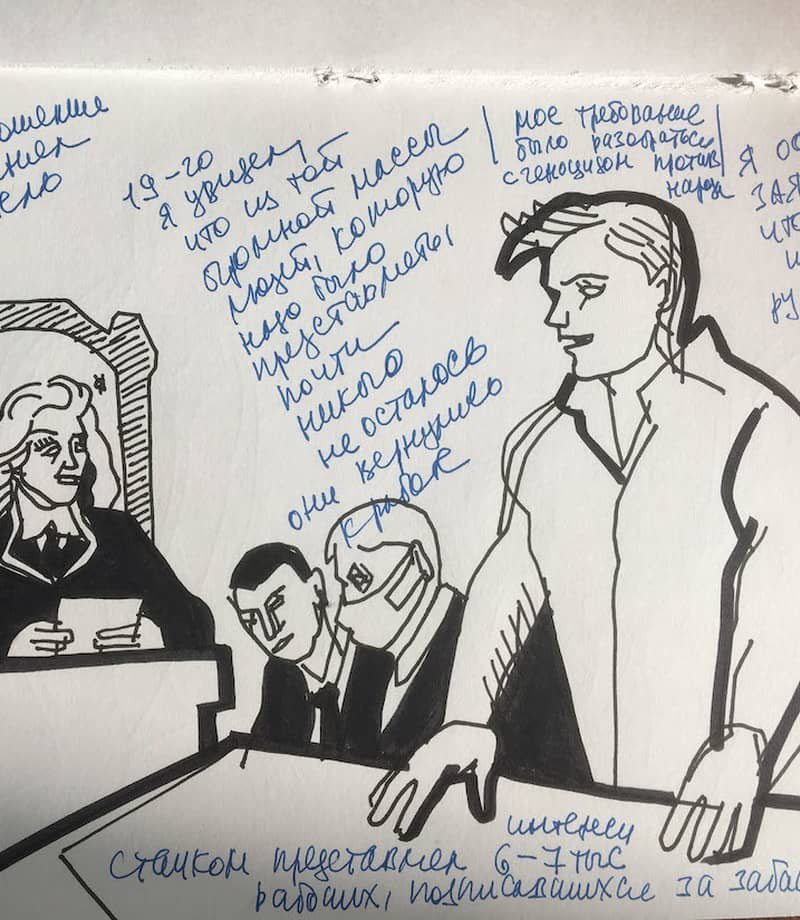 19-го
я увидел,
что из той
огромной массы
людей, которую
надо было
представлять
почти
никого
не осталось
они вернулись
к работе
мое требование
было разобраться
с геноцидом против
народа
я
что
интересы
стачком представлял 6-7 тыс
рабочих, подписавшихся за